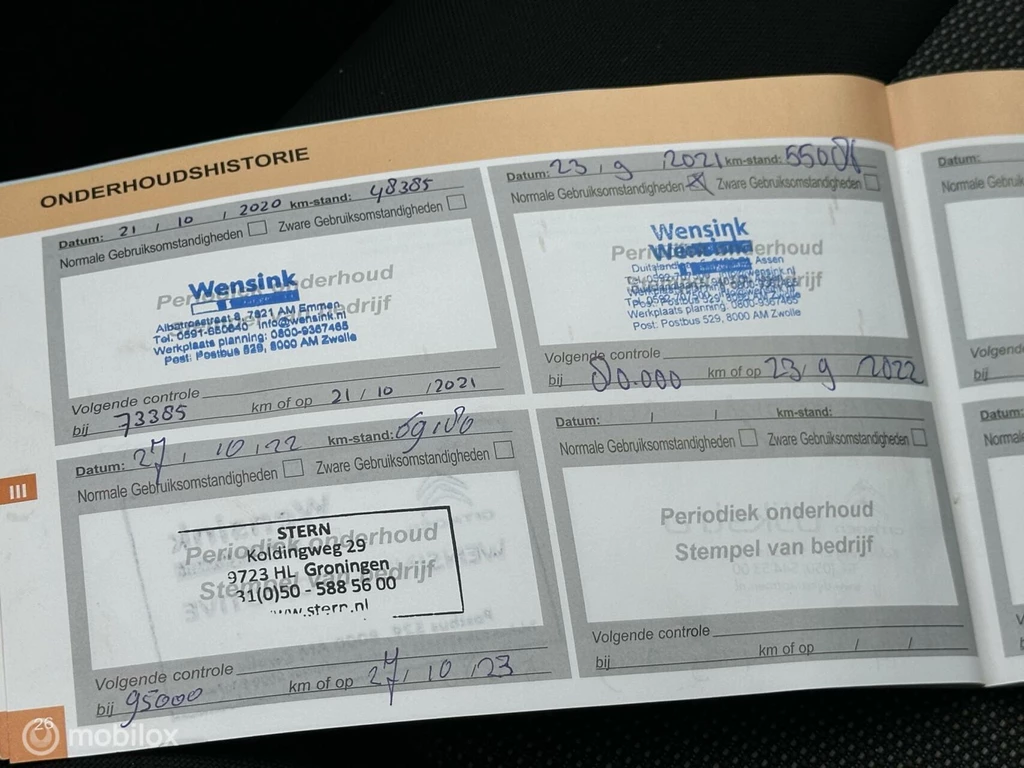 ONDERHOUDSHISTORIE
Datum: 21 / 10 / 2020 km-stand: 48385
Normale Gebruiksomstandigheden Zware Gebruiksomstandigheden
Periodiek onderhoud
Wensink
Albatrosstraat 8, 7821 AM Emmen
Tel. 0591-650640 info@wensink.nl
Werkplaats planning: 0800-9367465
Post: Postbus 529, 8000 AM Zwolle
Volgende controle
bij 73385 km of op 21 / 10 / 2021
Datum: 23 / 9 2021 km-stand: 55086
Normale Gebruiksomstandigheden X Zware Gebruiksomstandigheden
Wensink
Wensink
Assen
Werkplaats planning
Post: Postbus 529, 8000 AM Zwolle
Volgende controle
bij 80.000 km of op 23/ 9 2022
Datum: 27 / 10 / 22 km-stand: 69180
Normale Gebruiksomstandigheden Zware Gebruiksomstandigheden
Periodiek onderhoud
Stempel van bedrijf
STERN
Koldingweg 29
9723 HL Groningen
31(0)50 - 588 56 00
www.stern.nl
Volgende controle
bij 95000 km of op 27 / 10 / 23
Datum: / / km-stand:
Normale Gebruiksomstandigheden Zware Gebruiksomstandigheden
Periodiek onderhoud
Stempel van bedrijf
Volgende controle
bij km of op / /
Datum:
Normale Gebruik
Volgend
bij
Datum:
III
26
mobilox